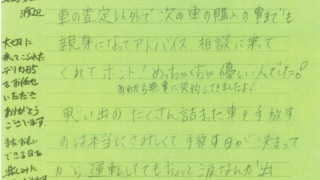 車の査定以外で次の車の購入の事までも
親身になってアドバイス、相談に乗って
くれてホント!めっちゃくちゃ優しい人でした!
あれから無事に契約できましたよ!
思い出のたくさん詰まった車を手放す
のは本当にさみしくて手放す日が決まって
から、運転してもちょっと涙なんか出
渡辺
大切に
乗ってこられた
デリカD5
をお任せ
いただき
ありがとう
ございます
できる日を
楽しみに